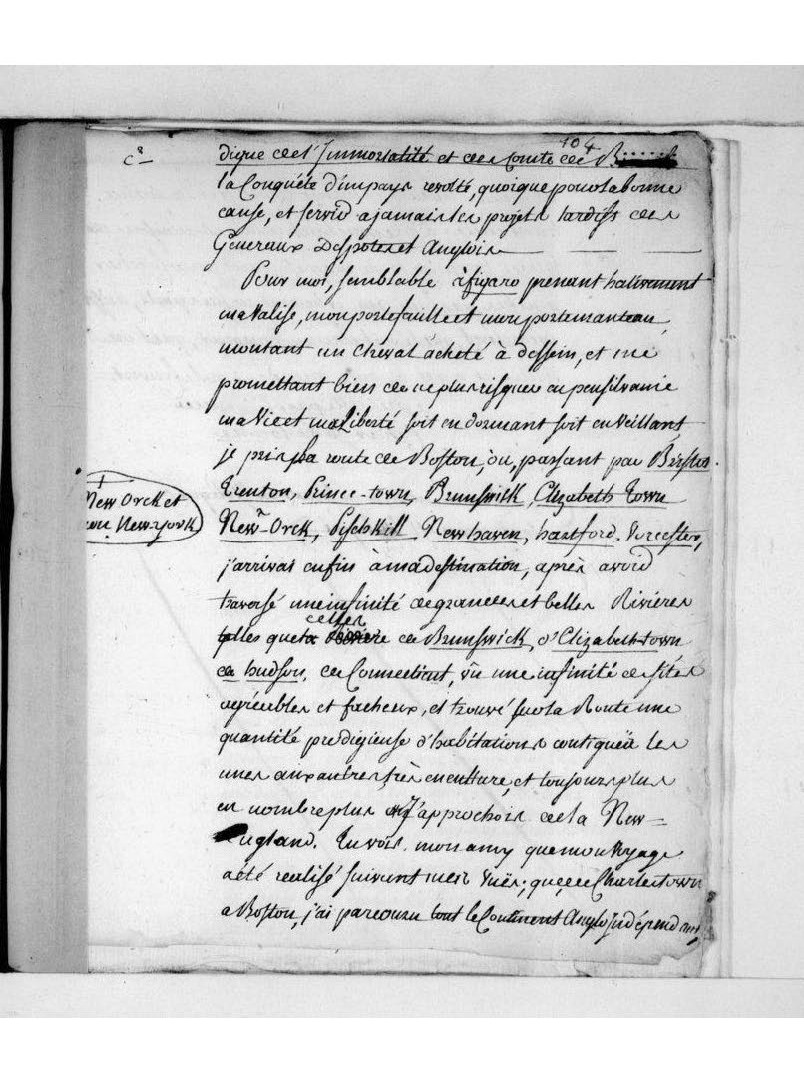 104
digne de l'Immortalité et du Comte de B.......
la Conquéte d'un pays revolté, quoique pour la bonne
cause, et servir a jamais les projets tardifs des
Generaux Despotes et Anglois
Pour moi, semblable à figaro prenant hativement
ma Valise, mon portefeuille et mon portemanteau,
montant un cheval acheté à dessein, et me
promettant bien de ne plus risquer en pensilvanie
ma Vie et ma Liberté soit en dormant soit en veillant,
je pris la route de Boston, ou, passant par Bristol.
Trenton, Prince-town, Brunswilk, Elizabeth Town
New-Orck, Fischkill New haven, hartford. Vorcester,
New Orck et
New-york
j'arrivai enfin à ma destination, après avoir
traversé une infinité de grandes et belles Rivières
telles que celles de Brunswick, d'Elizabeth-town
de hudson, de Connecticut, vu une infinité de sites
agréables et facheux, et trouvé sur la Route une
quantité prodigieuse d'habitations contiguës les
unes aux autres, très en culture, et toujours plus
en nombre plus j'approchois de la New=
England. Tu vois, mon amy que mon Voyage
a été realisé suivant mes vuës; que de Charlestown
a Boston, j'ai parcouru tout le Continent Anglo Indépendant,